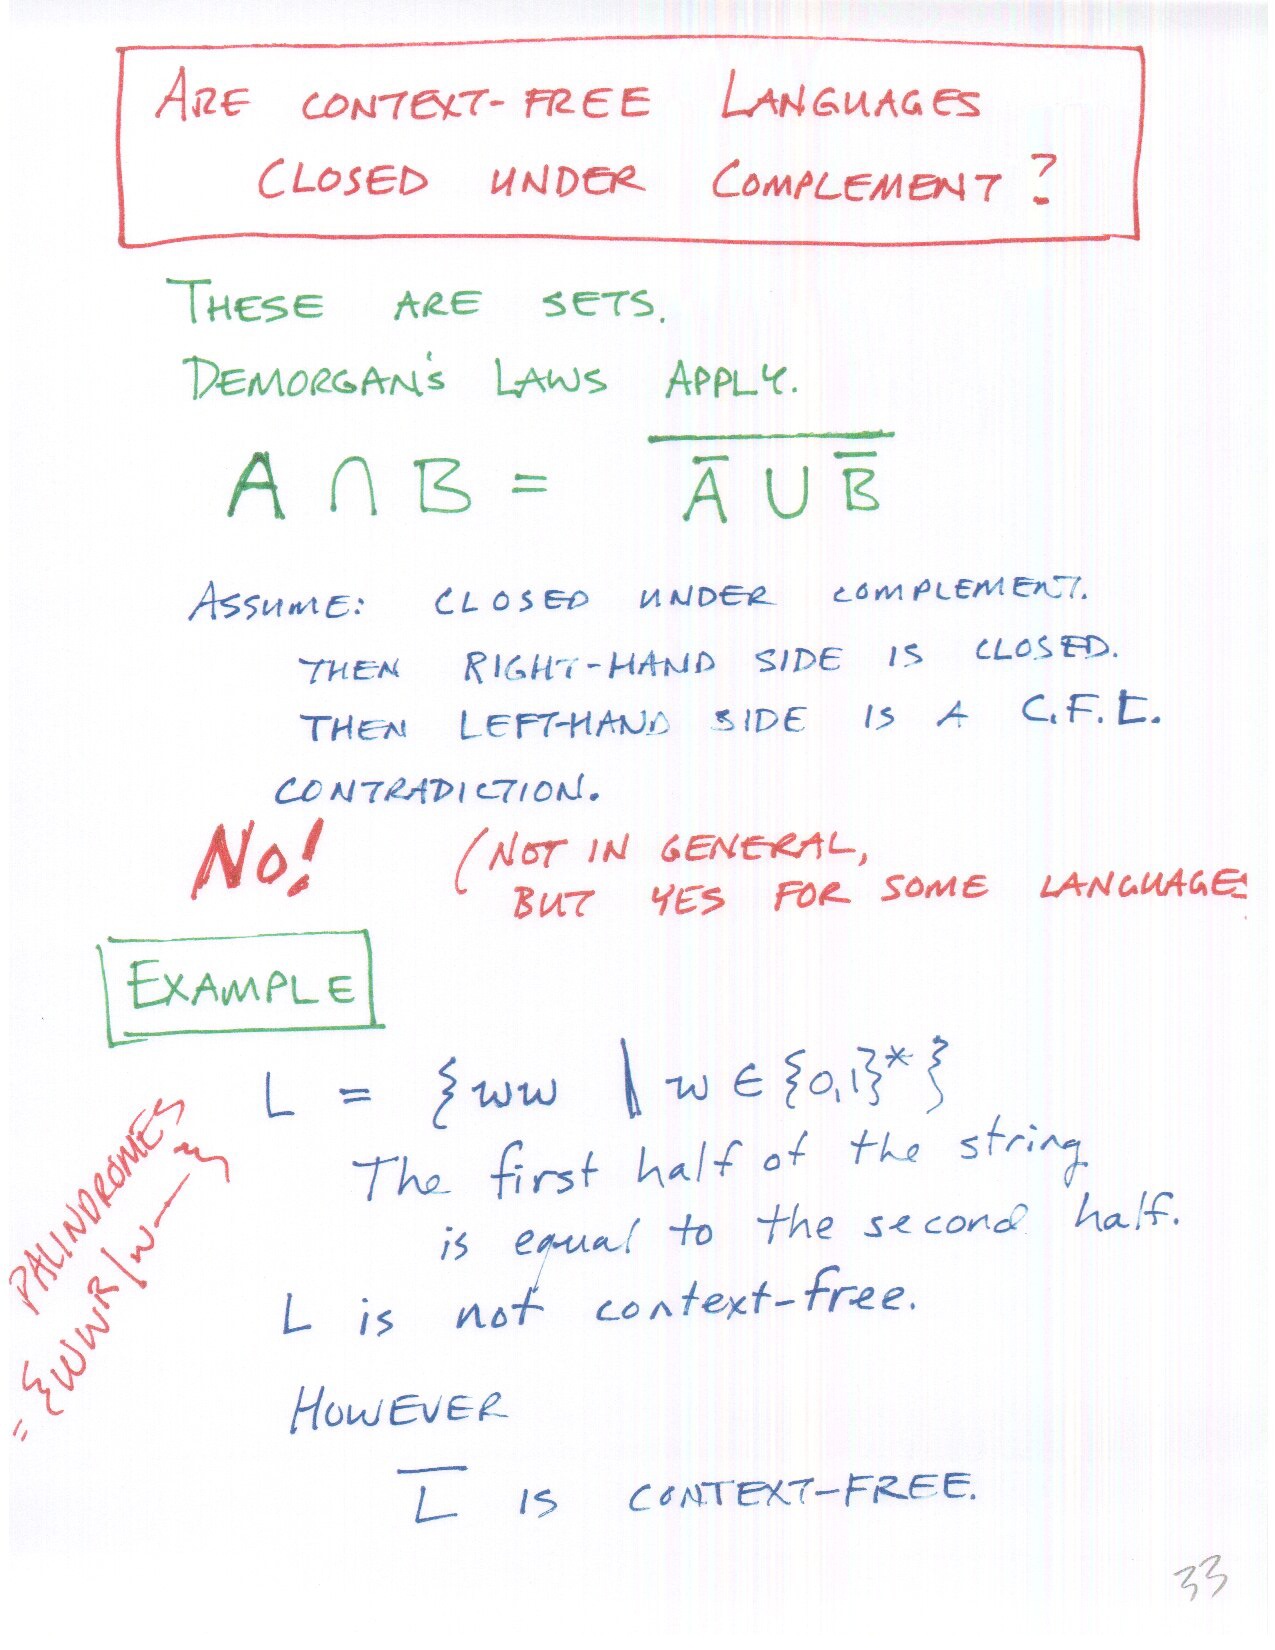 ARE CONTEXT-FREE LANGUAGES
CLOSED UNDER COMPLEMENT?
THESE ARE SETS.
DEMORGAN'S LAWS APPLY.
A ∩ B = \overline{\overline{A} ∪ \overline{B}}
ASSUME: CLOSED UNDER COMPLEMENT.
THEN RIGHT-HAND SIDE IS CLOSED.
THEN LEFT-HAND SIDE IS A C.F.L.
CONTRADICTION.
NO! (NOT IN GENERAL,
BUT YES FOR SOME LANGUAGES
EXAMPLE
L = {ww | w ∈ {0,1}*}
The first half of the string
is equal to the second half.
L is not context-free.
PALINDROMES
= {WWR | w — }
HOWEVER
\overline{L} IS CONTEXT-FREE.
33